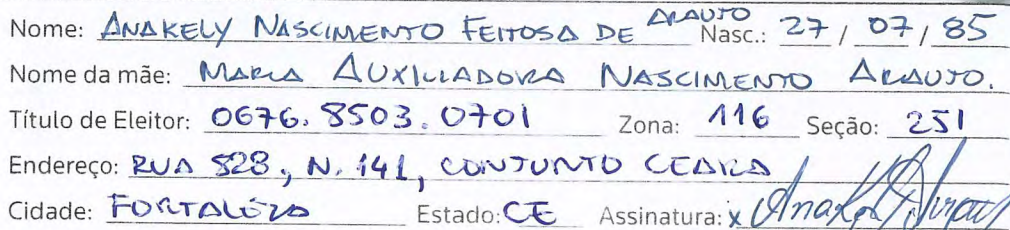 Nome: ANAKELY NASCIMENTO FEITOSA DE ARAUJO Nasc.: 27 / 07 / 85
Nome da mãe: MARIA AUXILIADORA NASCIMENTO ARAUJO.
Título de Eleitor: 0676. 8503. 0701 Zona: 116 Seção: 251
Endereço: RUA 528, N. 141, CONJUNTO CEARA
Cidade: FORTALEZA Estado: CE Assinatura: x